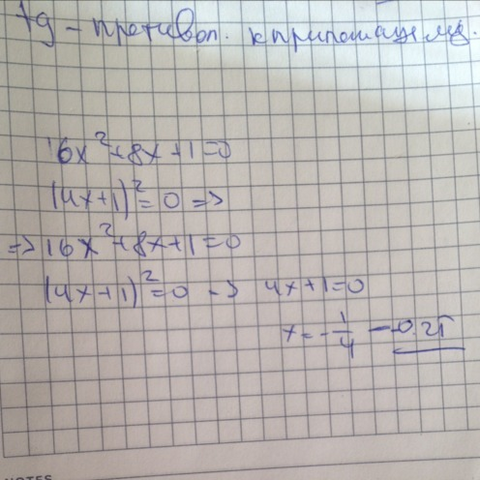 tg - противоп. к прилежащему.
16x²+8x+1=0
(4x+1)²=0 =>
=> 16x²+8x+1=0
(4x+1)²=0 -> 4x+1=0
x=-1/4 -0.25
NOTES